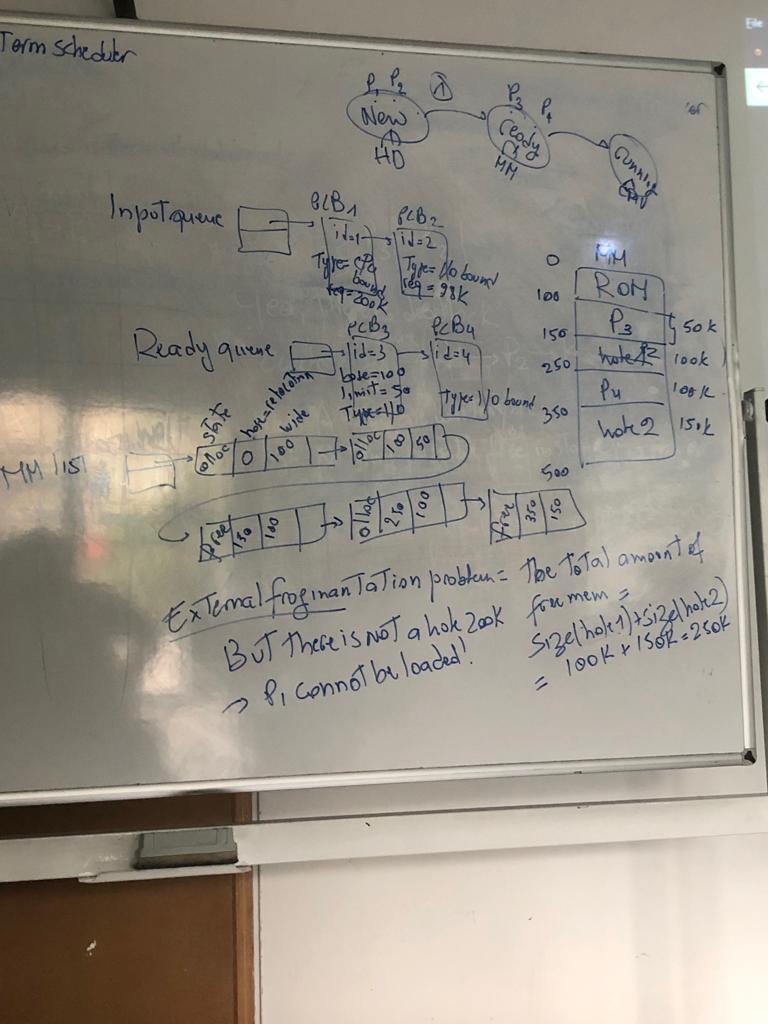 Term scheduler
P1 P2
New
HD
P3 P4
ready
MM
running
Input queue
PCB1
id=1
Type=CPU
bound
req=200K
PCB2
id=2
Type=I/O bound
req=98K
Ready queue
PCB3
id=3
base=100
limit=50
Type=I/O
PCB4
id=4
Type=I/O bound
MM
0
ROM
100
P3
50K
150
100K
250
P4
100K
350
hole2
150K
500
MM list
state
base=relocation
wide
alloc 0 100
alloc 100 50
free 150 100
alloc 250 100
free 350 150
External fragmantation problem = The total amount of
free mem =
Size(hole1)+Size(hole2)
= 100K + 150K = 250K
But there is not a hole 200K
→ P1 cannot be loaded!